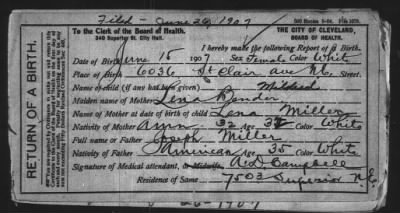 Filed - June 26, 1907
To the Clerk of the Board of Health.
THE CITY OF CLEVELAND,
BOARD OF HEALTH.
I hereby make the following Report of a Birth.
RETURN OF A BIRTH.
Date of Birth June 15 1907 Sex Female Color White
Place of Birth 6036 St Clair ave N.E. Street.
Name of child (if any has been given) Mildred
Maiden name of Mother Lena Bender
Name of Mother at date of birth of child Lena Miller
Nativity of Mother Age 32 Color White
Full name of Father Joseph Miller
Nativity of Father American Age 35 Color White
Signature of Medical attendant, or Midwife, A.D. Campbell
Residence of Same 7503 Superior N.E.